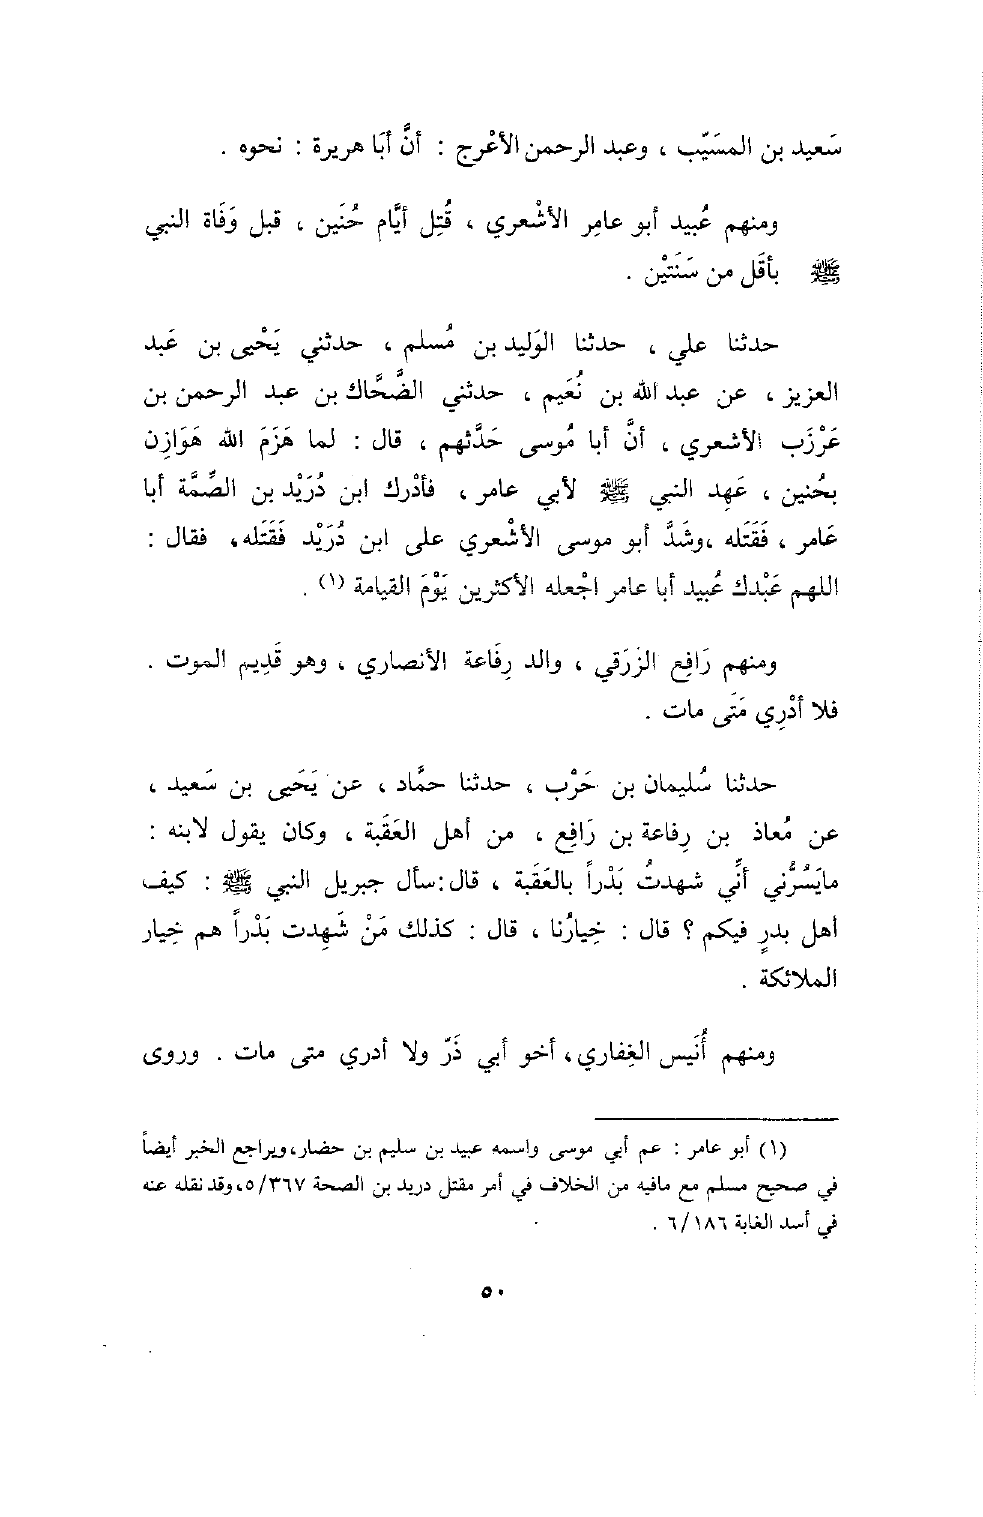 سَعيد بن المسَيّب ، وعبد الرحمن الأعْرج : أنَّ أبَا هريرة : نحوه .
ومنهم عُبيد أبو عامِر الأشْعري ، قُتِل أيَّام حُنَين ، قبل وَفَاة النبي
ﷺ بأقَل من سَنَتَيْن .
حدثنا علي ، حدثنا الوَليد بن مُسلم ، حدثني يَحْيى بن عَبد
العزيز ، عن عبد الله بن نُعَيم ، حدثني الضَّحَّاك بن عبد الرحمن بن
عَرْزَب الأشعري ، أنَّ أبا مُوسى حَدَّثهم ، قال : لما هَزَمَ الله هَوَازِن
بحُنين ، عَهِد النبي ﷺ لأبي عامر ، فأدْرك ابن دُرَيْد بن الصِّمَّة أبا
عَامر ، فَقَتَله ،وشَدَّ أبو موسى الأشْعري على ابن دُرَيْد فَقَتَله، فقال :
اللهم عَبْدك عُبيد أبا عامر اجْعله الأكثرين يَوْمَ القيامة (١) .
ومنهم رَافِع الزَرَقي ، والد رِفَاعة الأنصاري ، وهو قَدِيم الموت .
فلا أدْرِي مَتَى مات .
حدثنا سُليمان بن حَرْب ، حدثنا حمَّاد ، عن يَحَيى بن سَعيد ،
عن مُعاذ بن رِفاعة بن رَافِع ، من أهل العَقَبة ، وكان يقول لابنه :
مايَسُرُّني أنِّي شهدتُ بَدْراً بالعَقَبة ، قال:سأل جبريل النبي ﷺ : كيف
أهل بدرٍ فيكم ؟ قال : خِيارُنا ، قال : كذلك مَنْ شَهِدت بَدْراً هم خِيار
الملائكة .
ومنهم أُنَيس الغِفاري، أخو أبي ذَرّ ولا أدري متى مات . وروى
(١) أبو عامر : عم أبي موسى واسمه عبيد بن سليم بن حضار،ويراجع الخبر أيضاً
في صحيح مسلم مع مافيه من الخلاف في أمر مقتل دريد بن الصحة ٥/٣٦٧،وقد نقله عنه
في أسد الغابة ٦/١٨٦ .
٥٠